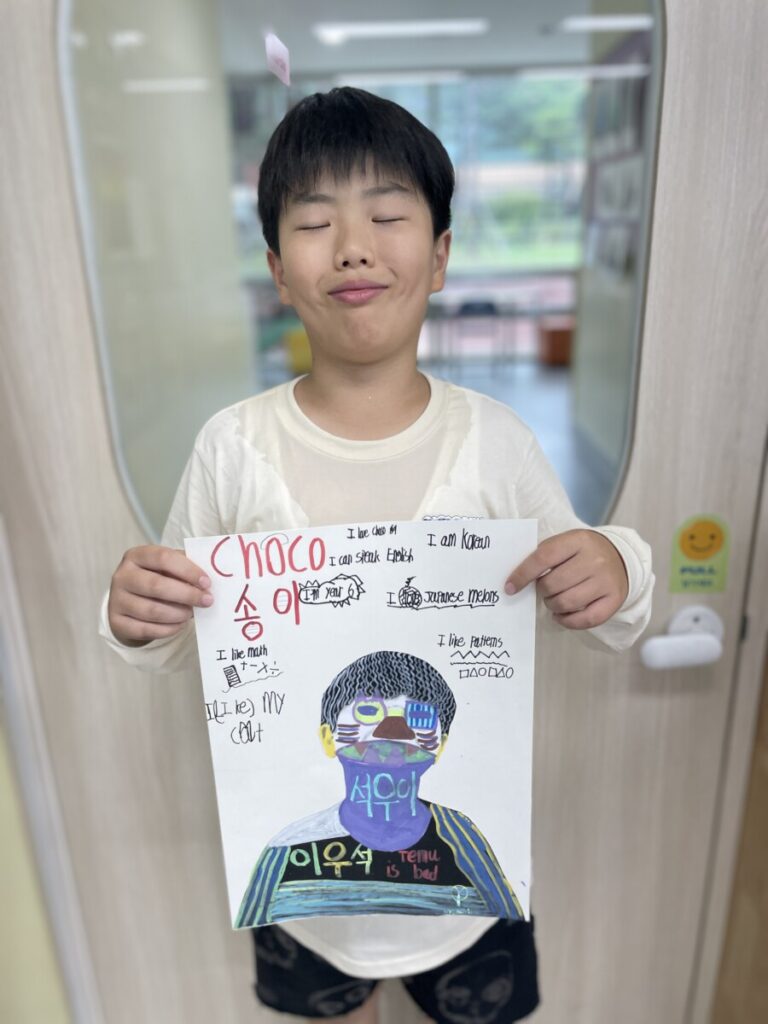 Choco
송이
I love choco
I can speak English
I am Korean
I'm Year 6
I Japanese melons
I like math
+ - × ÷
I like Patterns
□△○□△○
I(Ike) MY
석우이
이우석
Temu
is bad
PULL